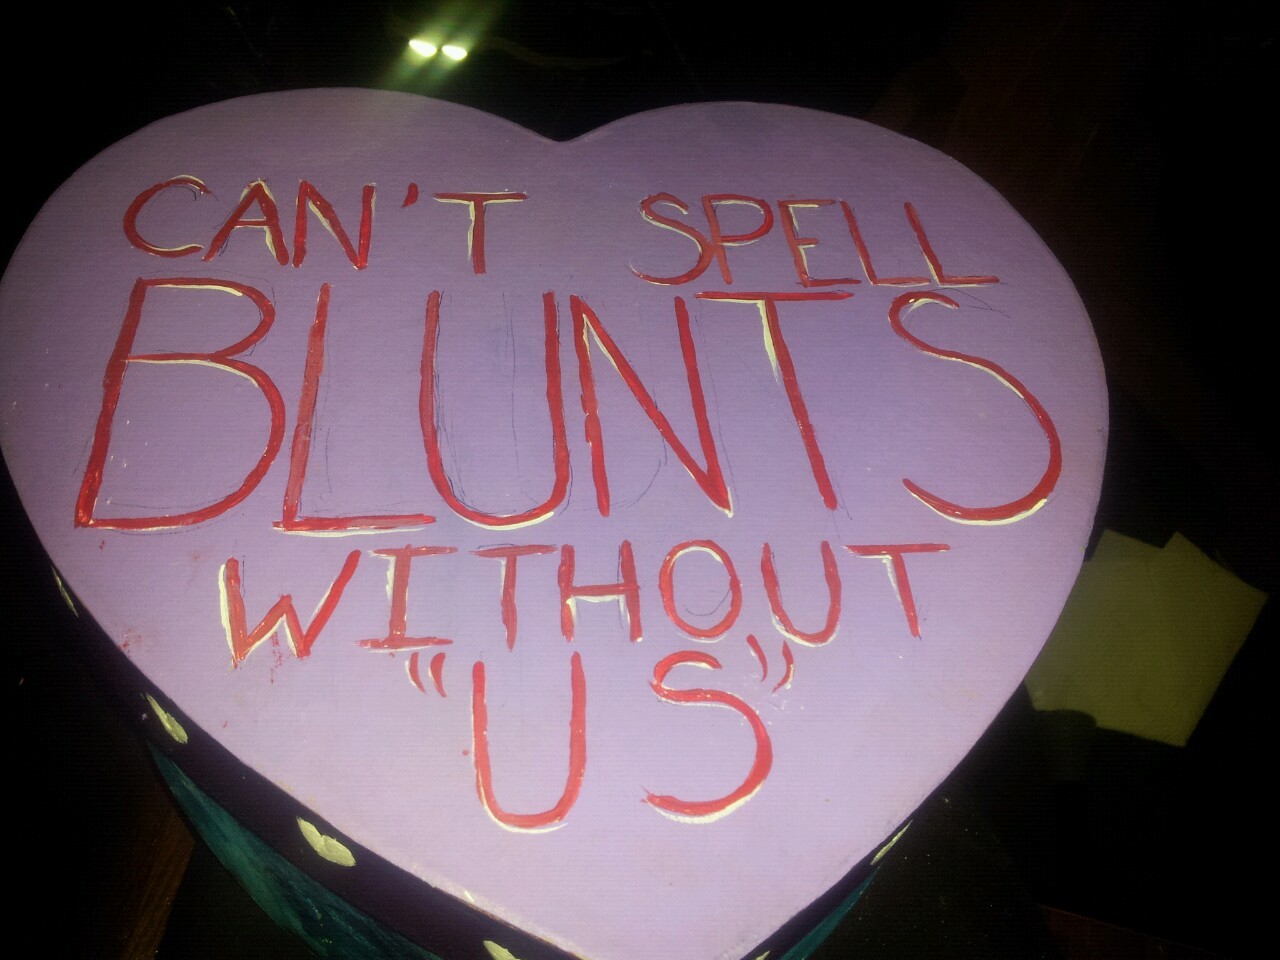 CAN'T SPELL
BLUNTS
WITHOUT
"US"